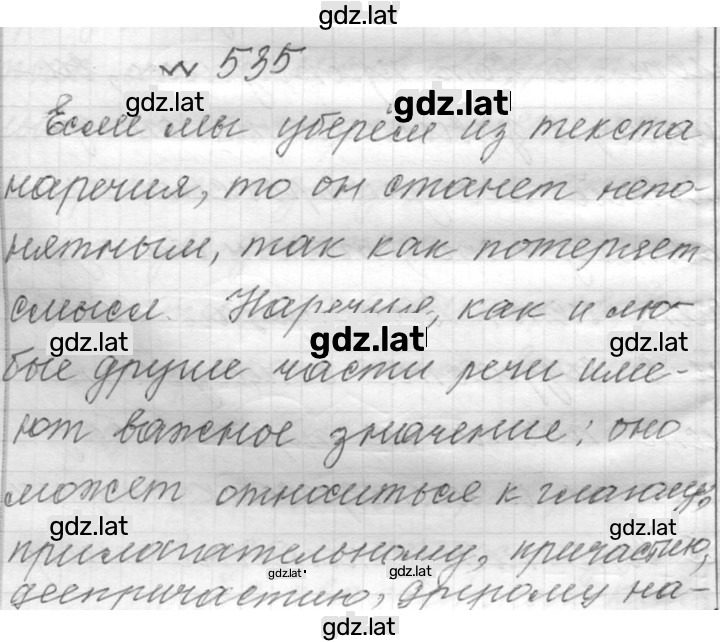 gdz.lat
№ 535
gdz.lat gdz.lat
Если мы уберём из текста
наречия, то он станет непо-
нятным, так как потеряет
смысл. Наречие, как и лю-
gdz.lat gdz.lat gdz.lat
бые другие части речи име-
ют важное значение: оно
может относиться к глаголу,
gdz.lat gdz.lat
прилагательному, причастию,
gdz.lat gdz.lat
деепричастию, другому на-
gdz.lat